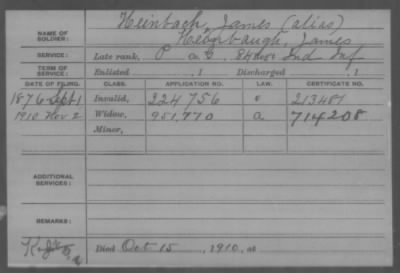 NAME OF SOLDIER: Heinbach, James (alias)
Heverbaugh, James
SERVICE: Late rank, P Co G, 84 Reg't Ind Inf
TERM OF SERVICE: Enlisted , 1 Discharged , 1
DATE OF FILING. CLASS. APPLICATION NO. LAW. CERTIFICATE NO.
1876 Sept 1 Invalid, 224 756 213481
1910 Nov 2 Widow, 951,770 a 714208
Minor,
ADDITIONAL SERVICES:
REMARKS:
Died Oct 15 , 1910, at